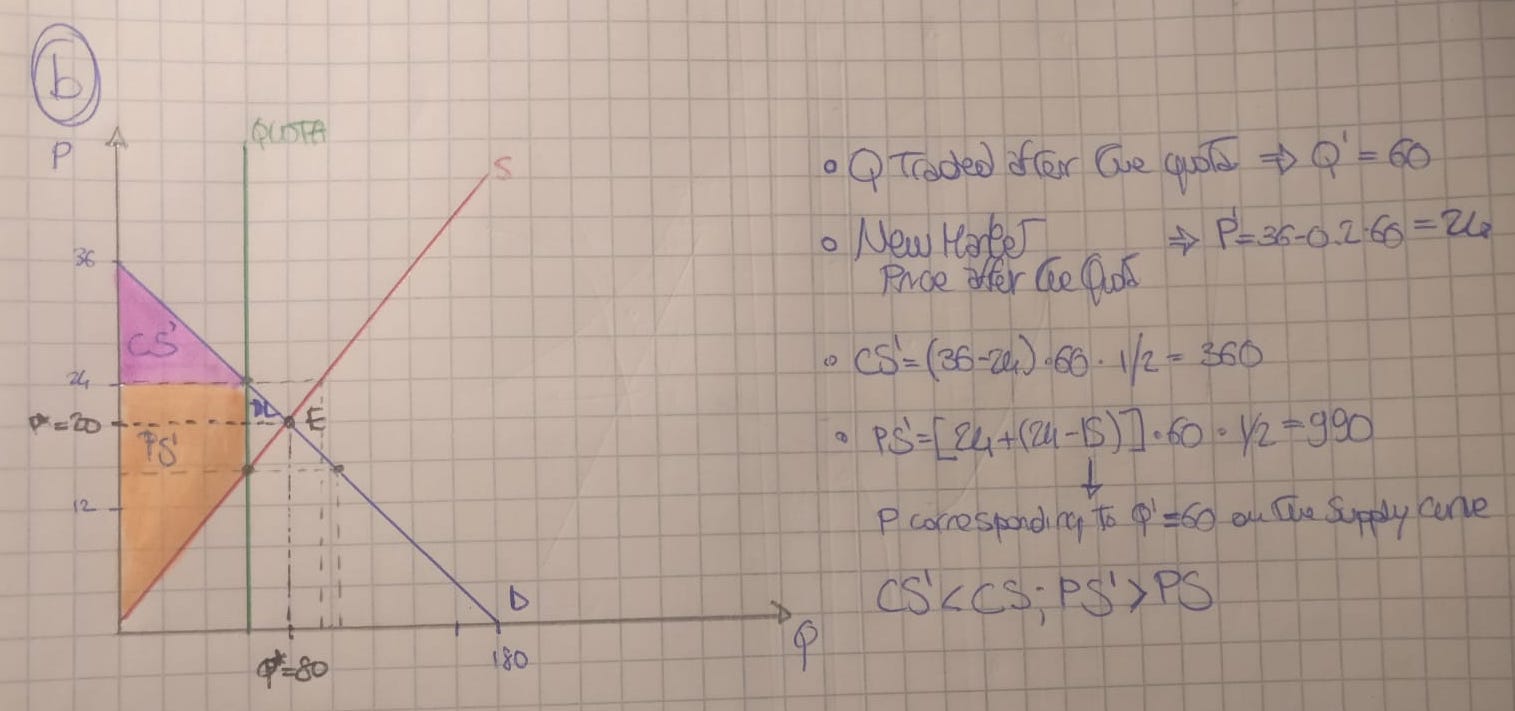 b
P
QUOTA
S
36
CS'
24
DL
P*=20
E
PS'
12
D
Q*=80
180
Q
• Q Traded after the quota ⇒ Q' = 60
• New Market ⇒ P'=36-0.2·60=24
Price after the Quota
• CS'=(36-24)·60·1/2 = 360
• PS'=[24+(24-15)]·60·1/2=990
↓
P corresponding to Q'=60 on the Supply curve
CS'<CS; PS'>PS